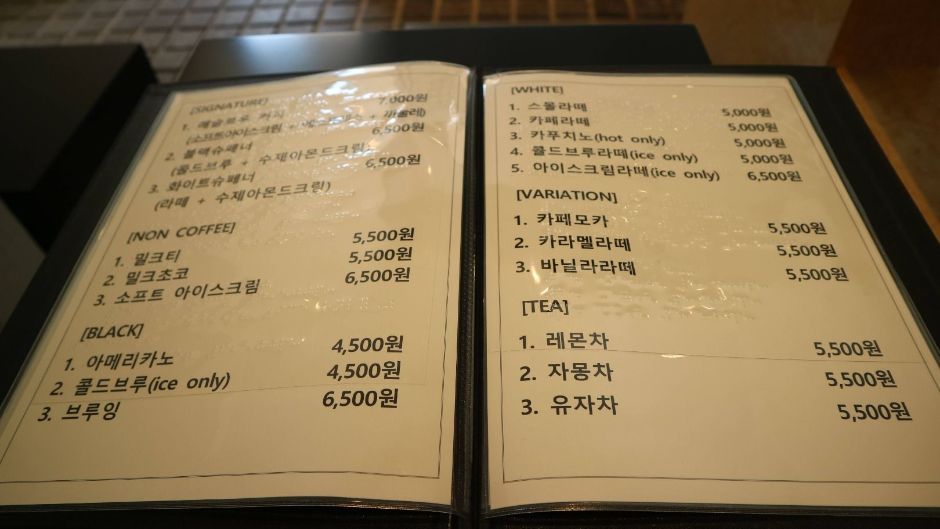 [SIGNATURE]
1. 커피 7,000원
(소프트아이스크림 + +
2. 블랙슈페너 6,500원
(콜드브루 + 수제아몬드크림)
3. 화이트슈페너 6,500원
(라떼 + 수제아몬드크림)
[NON COFFEE]
1. 밀크티 5,500원
2. 밀크초코 5,500원
3. 소프트 아이스크림 6,500원
[BLACK]
1. 아메리카노 4,500원
2. 콜드브루(ice only) 4,500원
3. 브루잉 6,500원
[WHITE]
1. 스몰라떼 5,000원
2. 카페라떼 5,000원
3. 카푸치노(hot only) 5,000원
4. 콜드브루라떼(ice only) 5,000원
5. 아이스크림라떼(ice only) 6,500원
[VARIATION]
1. 카페모카 5,500원
2. 카라멜라떼 5,500원
3. 바닐라라떼 5,500원
[TEA]
1. 레몬차 5,500원
2. 자몽차 5,500원
3. 유자차 5,500원